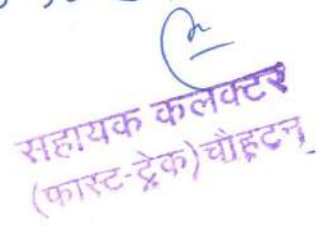 सहायक कलक्टर
(फास्ट-ट्रेक) चौहटन